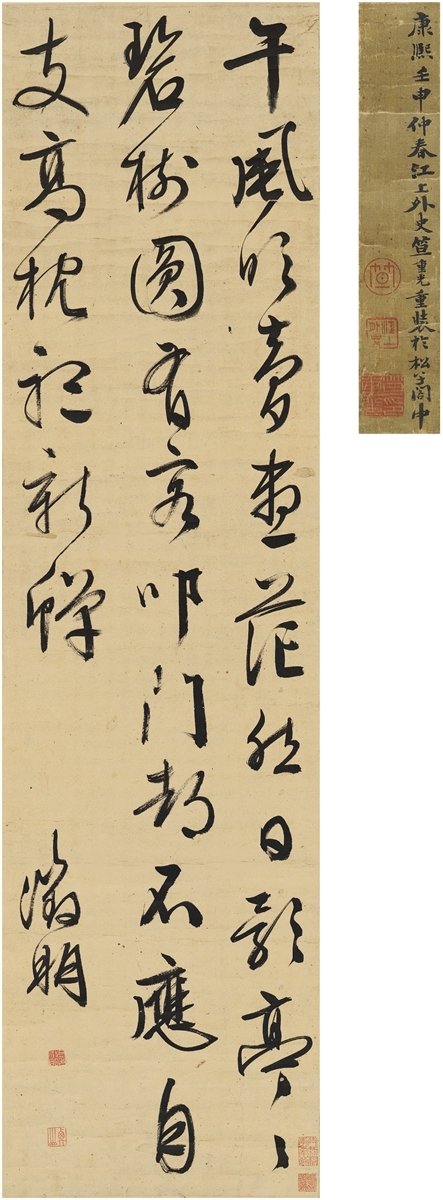 康熙壬申仲春江上外史笪重光重裝於松子閣中
午風吹夢茫然日影亭〻
碧樹圓有客叩門都不應自
支高枕聽新蟬
徵明